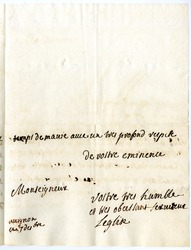 temps de mavie avec un tres profond respect
de vostre eminence
Monseigneur
vostre tres humble
et tres obeissant serviteur
avignon